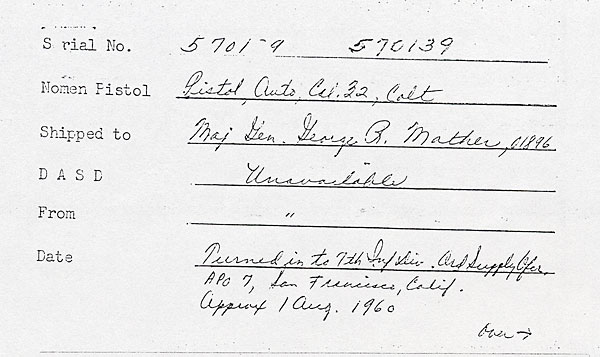 S rial No. 5701-9 570139
Nomen Pistol Pistol, Auto, Cal. 32, Colt
Shipped to Maj Gen. George R. Mather, 01896
D A S D Unavailable
From "
Date Turned in to 7th Inf Div. Ord Supply Ofcr.
APO 7, San Francisco, Calif.
Approx 1 Aug. 1960
Over →